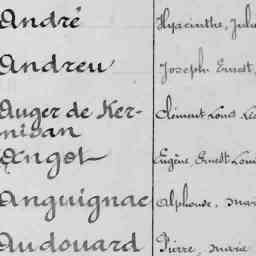 André Hyacinthe, Jule
Andreu Joseph Ernest,
Auger de Ker-
nisan Clément Louis
Angot Eugène Ernest Loui
Anguignac Alphonse, mari
Audouard Pierre, marie